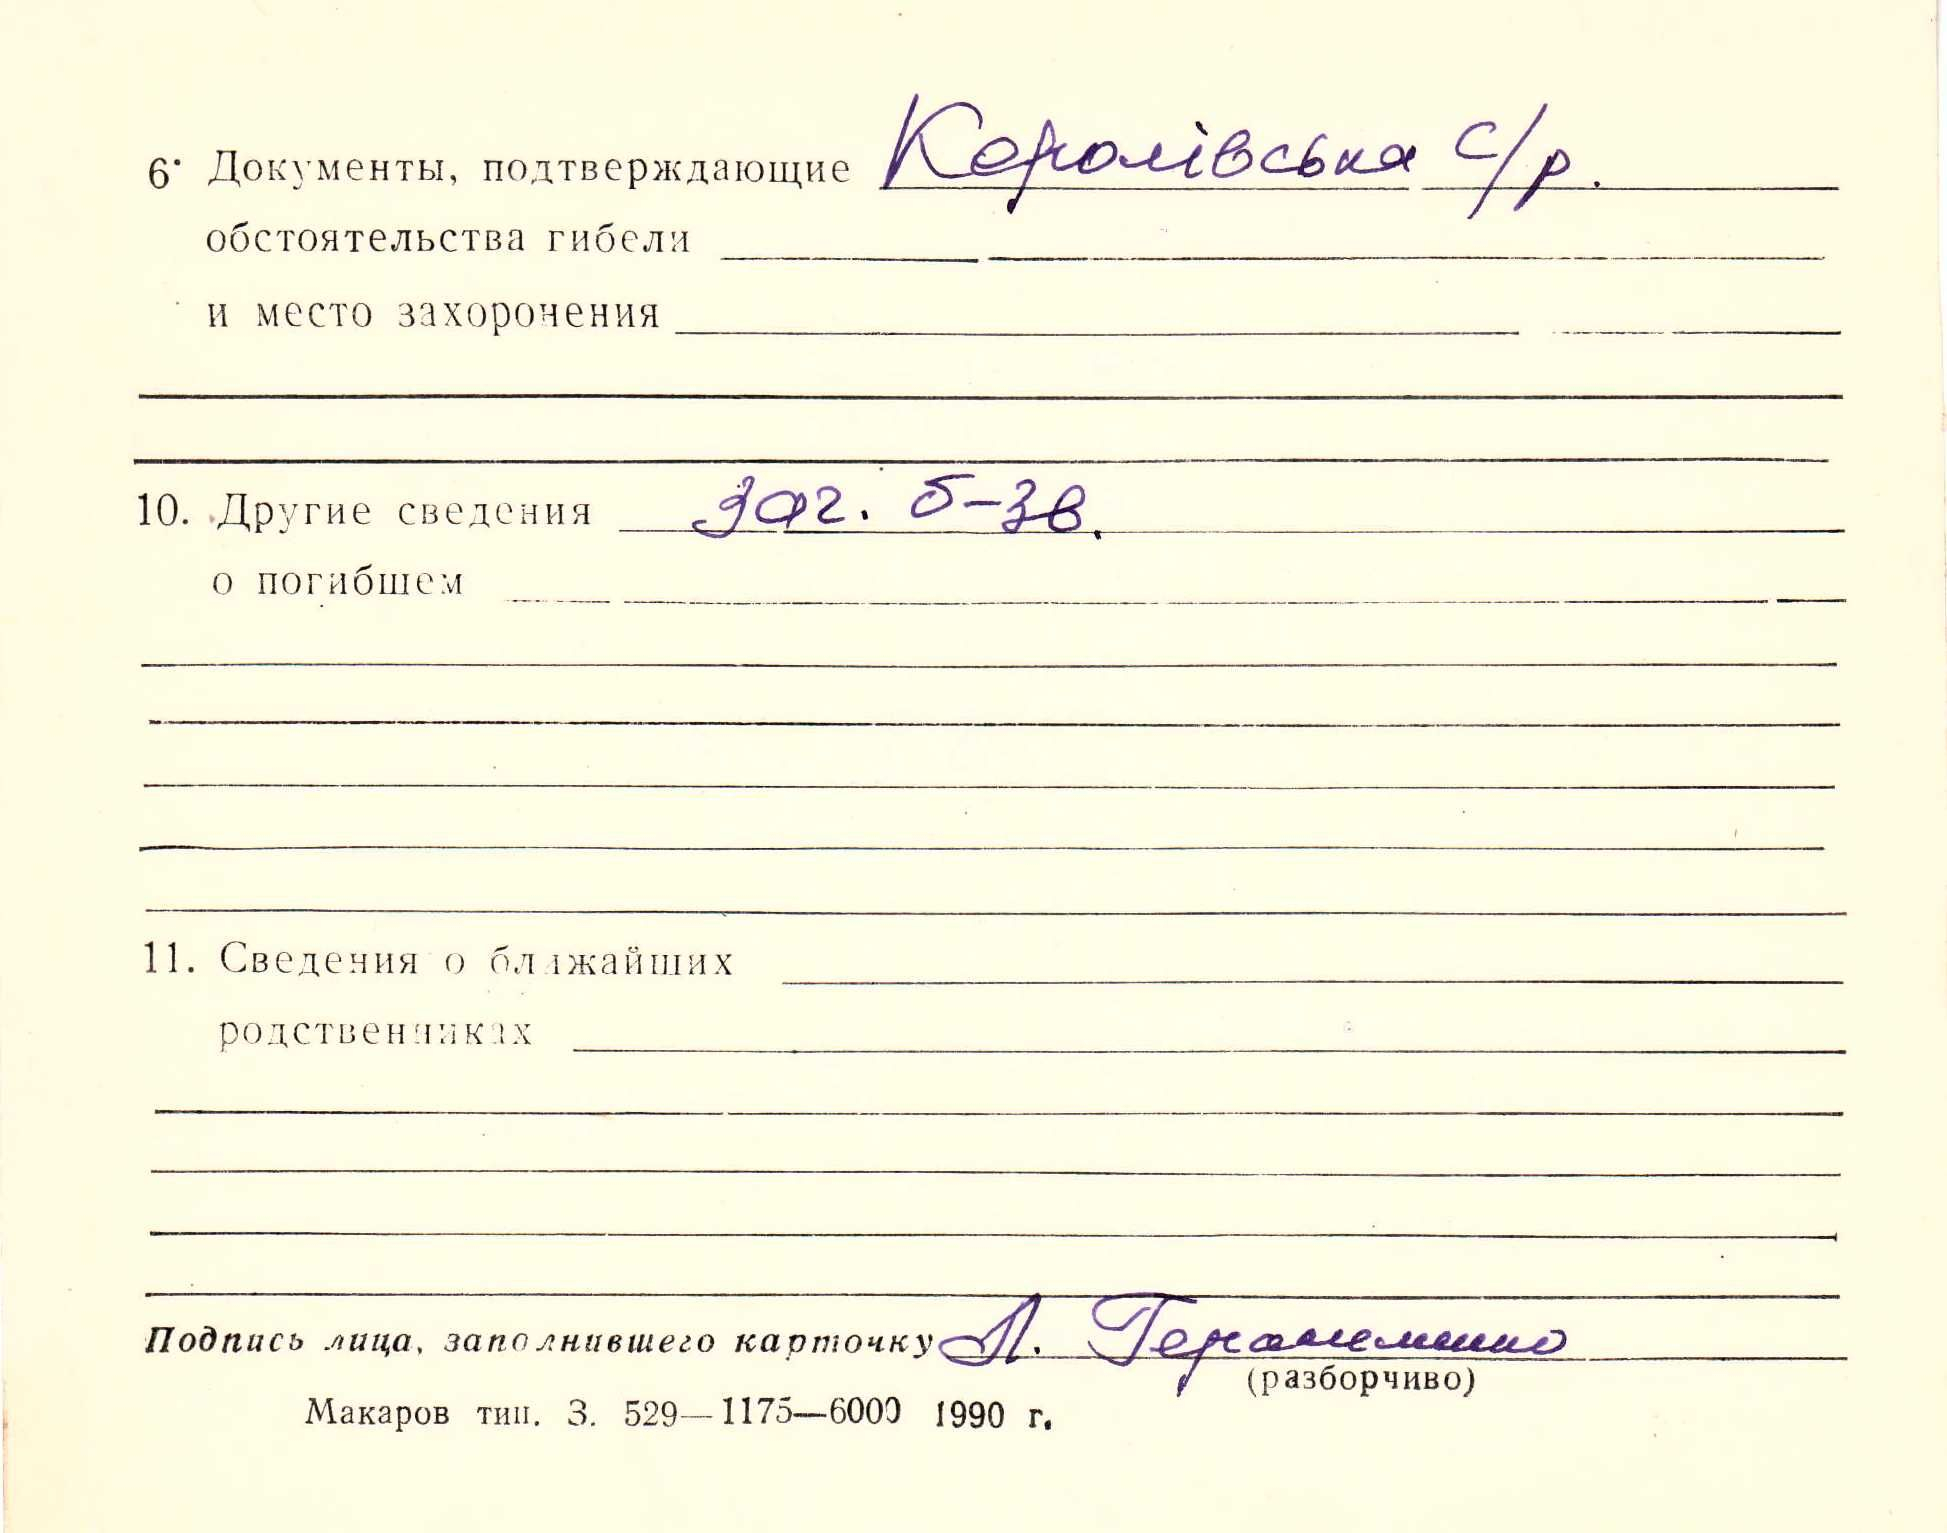 6. Документы, подтверждающие Королівська с/р.
обстоятельства гибели
и место захоронения
10. Другие сведения заг. б-зв.
о погибшем
11. Сведения о ближайших
родственниках
Подпись лица, заполнившего карточку Л.
(разборчиво)
Макаров тип. З. 529—1175—6000 1990 г.